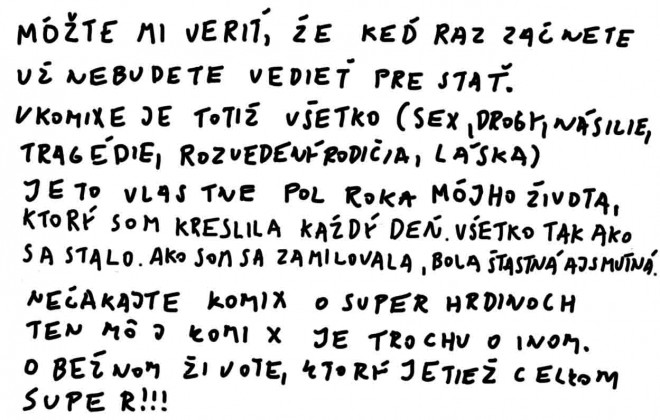 MÓŽTE MI VERIŤ, ŽE KEĎ RAZ ZAČNETE
UŽ NEBUDETE VEDIEŤ PRE STAŤ.
V KOMIXE JE TOTIŽ VŠETKO (SEX, DROGY, NÁSILIE,
TRAGÉDIE, ROZVEDENÝ RODIČIA, LÁSKA)
JE TO VLASTNE POL ROKA MÔJHO ŽIVOTA,
KTORÝ SOM KRESLILA KAŽDÝ DEŇ. VŠETKO TAK AKO
SA STALO. AKO SOM SA ZAMILOVALA, BOLA ŠTASTNÁ AJ SMUTNÁ.
NEČAKAJTE KOMIX O SUPER HRDINOCH
TEN MÔJ KOMIX JE TROCHU O INOM.
O BEŽNOM ŽIVOTE, KTORÝ JE TIEŽ CELKOM
SUPER!!!